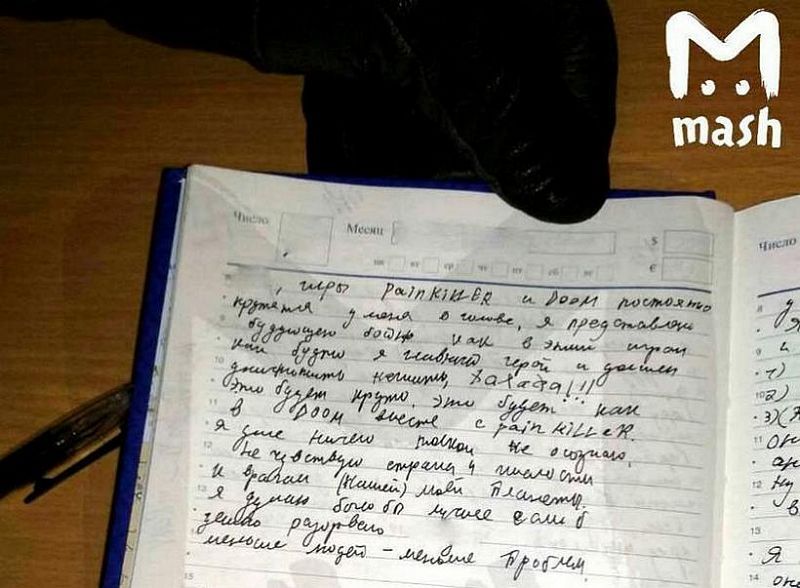 M
mash
Число
Месяц
$
€
пн вт ср чт пт сб вс
Число
, игры PainKiLLER и DOOM постоятно
крутятся у меня в голове, я представляю
будующею бойню как в этих играх
как будто я главный герой и должен
уничтожить нечисть, Хахаха!!!
Это будет круто. Это будет... как
в DOOM вместе с painKiLLeR.
Я даже ничего не осознаю,
не чувствую страха и жалости
к врагам (нашей) моей Планеты.
Я думаю было бы лучше если б
землю разорвало
меньше людей – меньше Проблем.
8
9
10
11
12
13
14
15
1)
2)
3)
Я